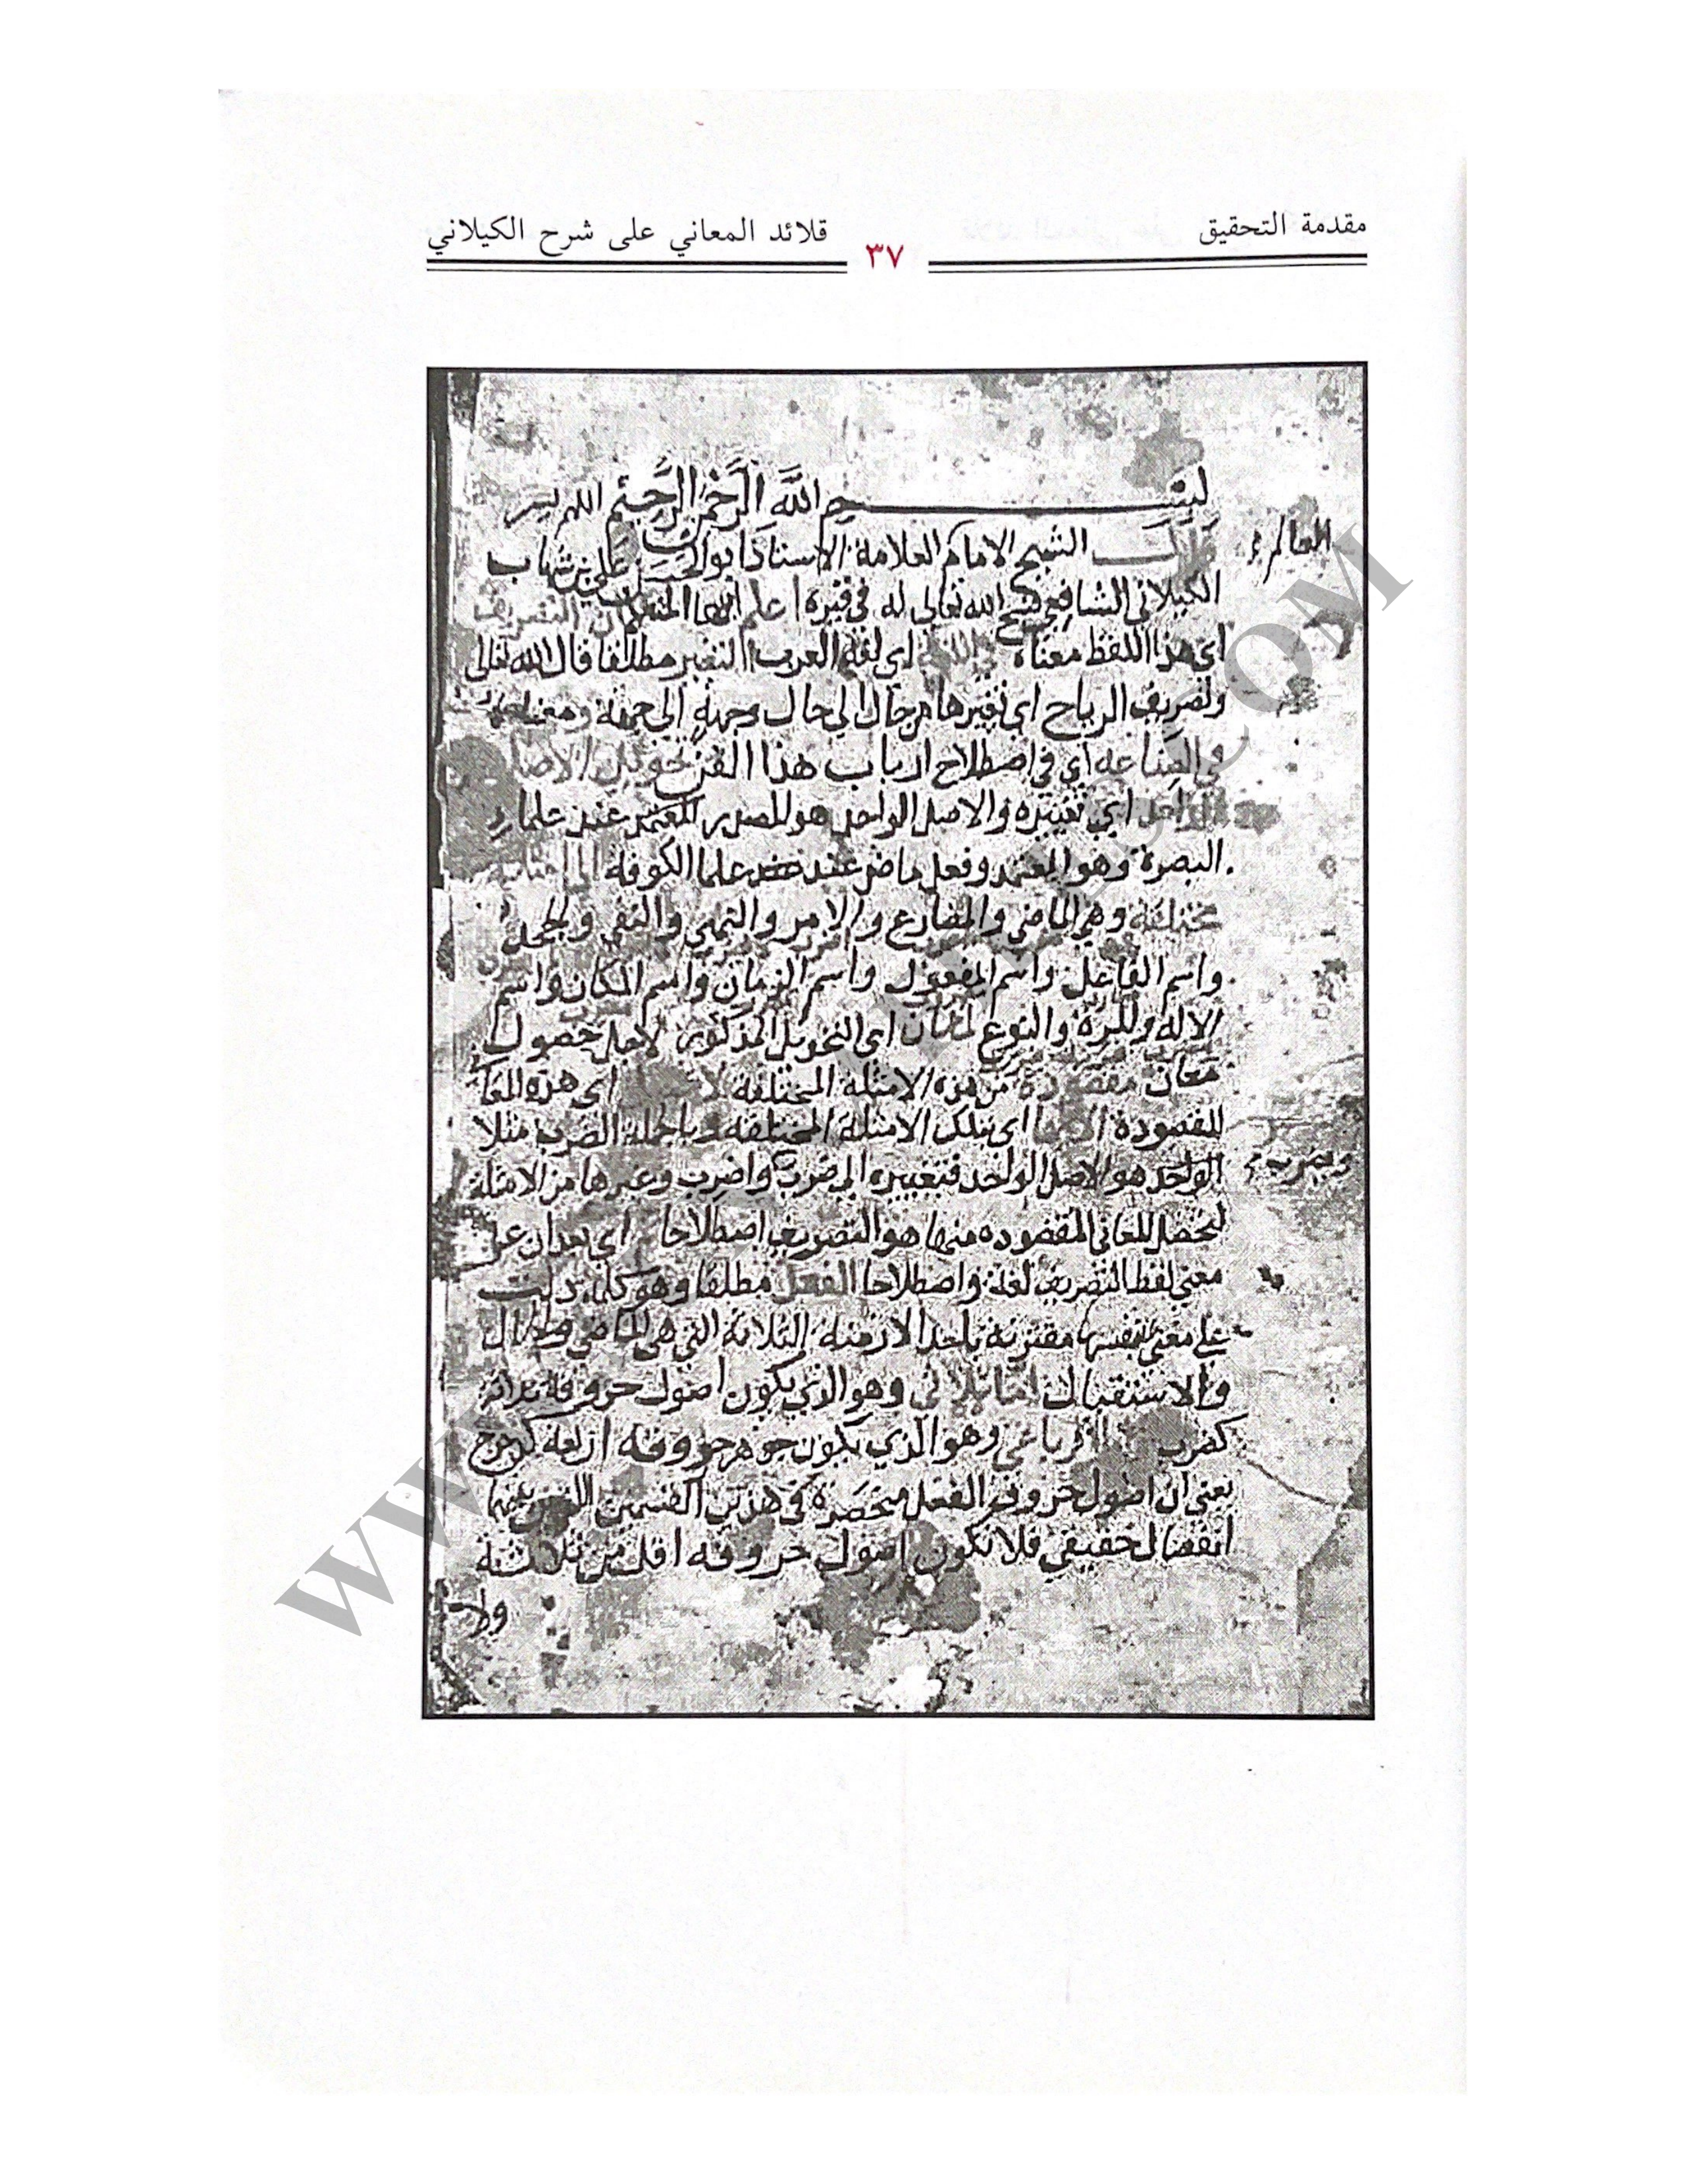 مقدمة التحقيق
٣٧
قلائد المعاني على شرح الكيلاني
بسم الله الرحمن الرحيم اللهم يسر
قال الشيخ الامام العلامة الاستاذ ابو الحسن علي بن شهاب
الكيلاني الشافعي فسح الله تعالى له في قبره اعلم ايها المتعلم ان التصريف
اي هذا اللفظ معناه في اللغة اي لغة العرب التغيير مطلقا قال الله تعالى
وتصريف الرياح اي تغييرها من حال الى حال وجهة الى جهة ومعناه
في الصناعة اي في اصطلاح ارباب هذا الفن تحويل الاصل
الواحد اي تغييره والاصل الواحد هو المصدر المعتمر عند علماء
البصرة وهو المعتمد وفعل ماض عند علما الكوفة الى امثلة
مختلفة وهي الماضي والمضارع والامر والنهي والنفي والجحد
واسم الفاعل واسم المفعول واسم الزمان واسم المكان واسم
الاله والمرة والنوع لمعان اي التحويل المذكور لاجل حصول
معان مقصودة من هذه الامثلة المختلفة لا تحصل اي هذه المعا
المقصودة الا بها اي بتلك الامثلة المختلفة وبالجملة الضرب مثلا
الواحد هو الاصل الواحد فتغييره الى ضرب واضرب وغيرها من الامثلة
لتحصل المعاني المقصوده منها هو التصريف اصطلاحا اي بعدان عر
معنى لفظ التصريف لغة واصطلاحا الفعل مطلقا وهو كلمة دلت
على معنى بنفسها مقترنة باحد الازمنة الثلاثة التي هي الماضي والحال
والاستقبال اما ثلاثي وهو الذي يكون اصول حروفه ثلاثة
كضرب الرباعي وهو الذي يكون حروفه اربعة كدحرج
يعني ان اصول حروف الفعل منحصرة في هذين القسمين
انفصال حقيقي فلا تكون اصول حروفه اقل من ثلاثة
ولا
ويضرب